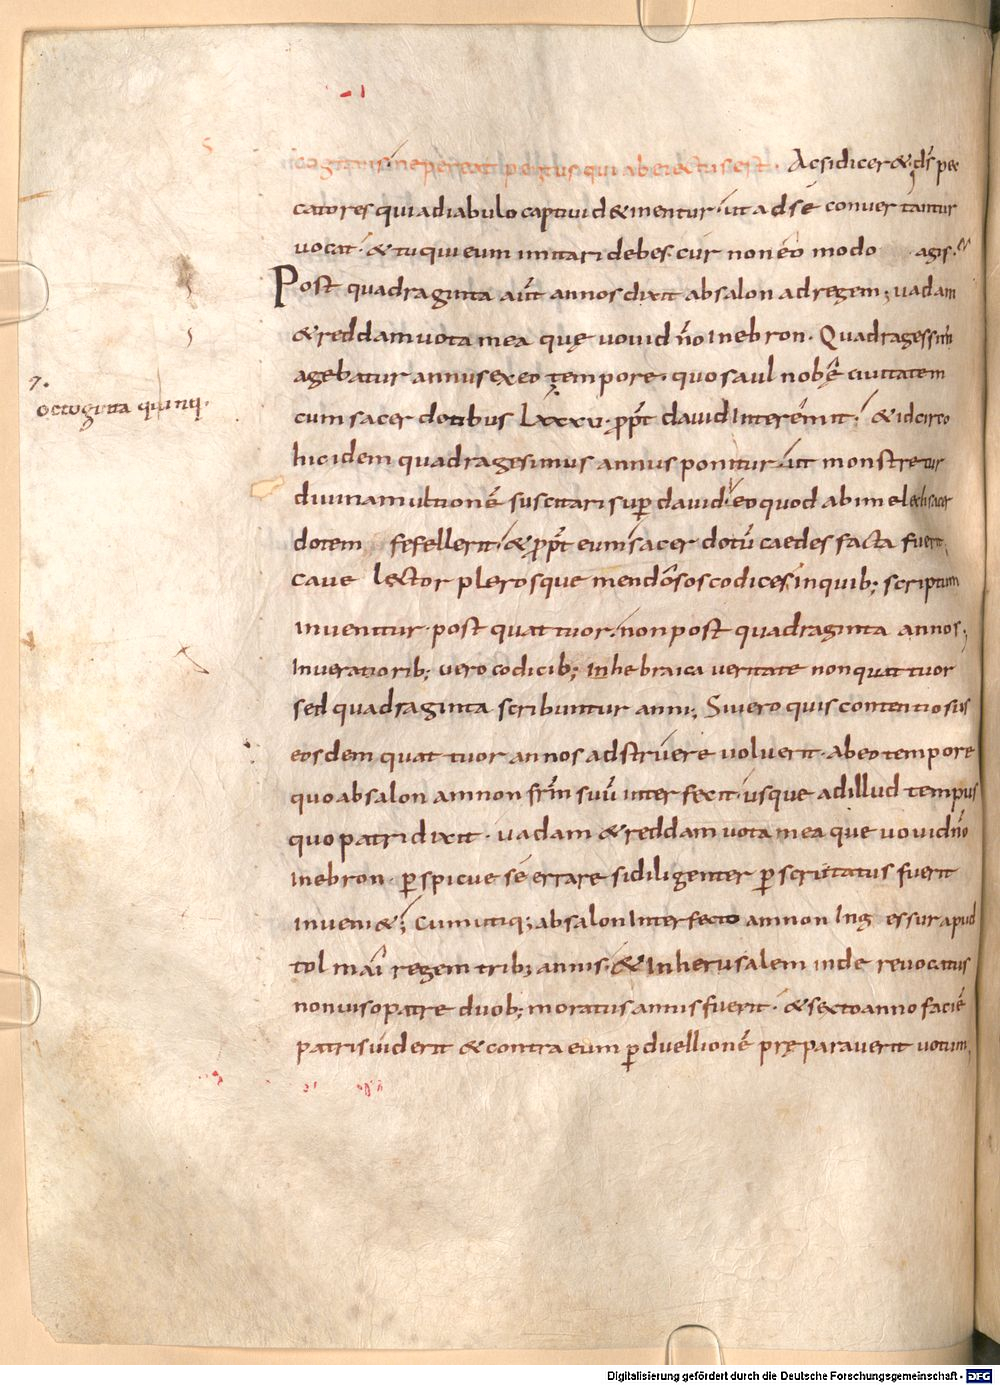 cogitans ne pereat penitus qui abeiectus est. Ac si dicer& d̄s pec
catores qui a diabulo captiui d&inentur. ut ad se conuertantur
uocat. & tu qui eum imitari debes. cur non eo modo agis.
Post quadraginta aūt annos dixit absalon ad regem; uadam
& reddam uota mea quę uoui dn̄o in ebron. Quadragessim
agebatur annus ex eo tempore. quo saul nobę̄ ciuitatem
7.
octoginta quinq.
cum sacerdotibus Lxxxu. ꝓpt̄ dauid interemit. & idcirco
hic idem quadragesimus annus ponitur. ut monstretur
diuinam ultionē suscitari suꝑ dauid. eo quod abimelech sacer
dotem fefellerit. & ꝓpt̄ eum sacerdotū caedes facta fuerit.
Caue lector plerosque mendosos codices. in quib; scriptum
inuenitur. post quattuor. non post quadraginta annos;
In ueratiorib; uero codicib; in hebraica ueritate non quattuor
sed quadraginta scribuntur anni; Si uero quis contentiosus
eosdem quattuor annos adstruere uoluerit. ab eo tempore
quo absalon amnon fr̄m suū interfecit. usque ad illud tempus
quo patri dixit. uadam & reddam uota mea que uoui dn̄o
in ebron. ꝑspicue se errare si diligenter ꝑscrutatus fuerit
inueni&; Cum itiq; absalon interfecto amnon in gessur apud
tolmai regem trib; annis. & in herusalem inde reuocatus
non uiso patre duob; moratus annis fuerit. & sexto anno faciē
patris uiderit & contra eum ꝑduellionē pręparauerit uotum;
Digitalisierung gefördert durch die Deutsche Forschungsgemeinschaft - DFG